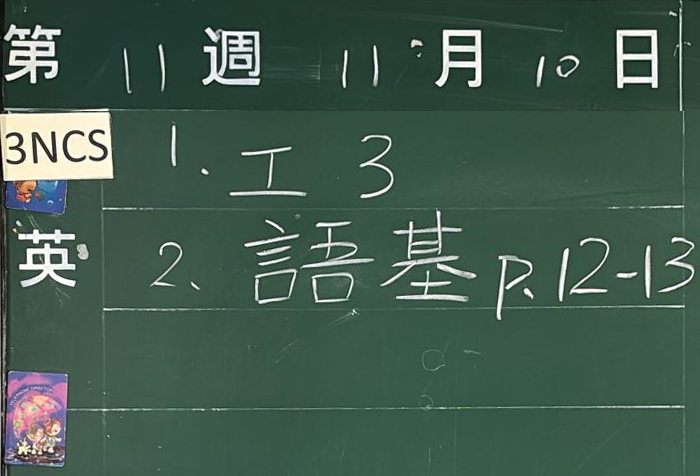 第 11 週 11 月 10 日
3NCS
1. 工 3
英
2. 語基 p. 12-13